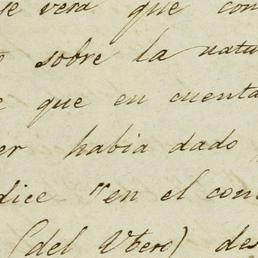 se vera que con
sobre la natu
e que en cuenta
er habia dado
dice "en el con
(del Utero) des